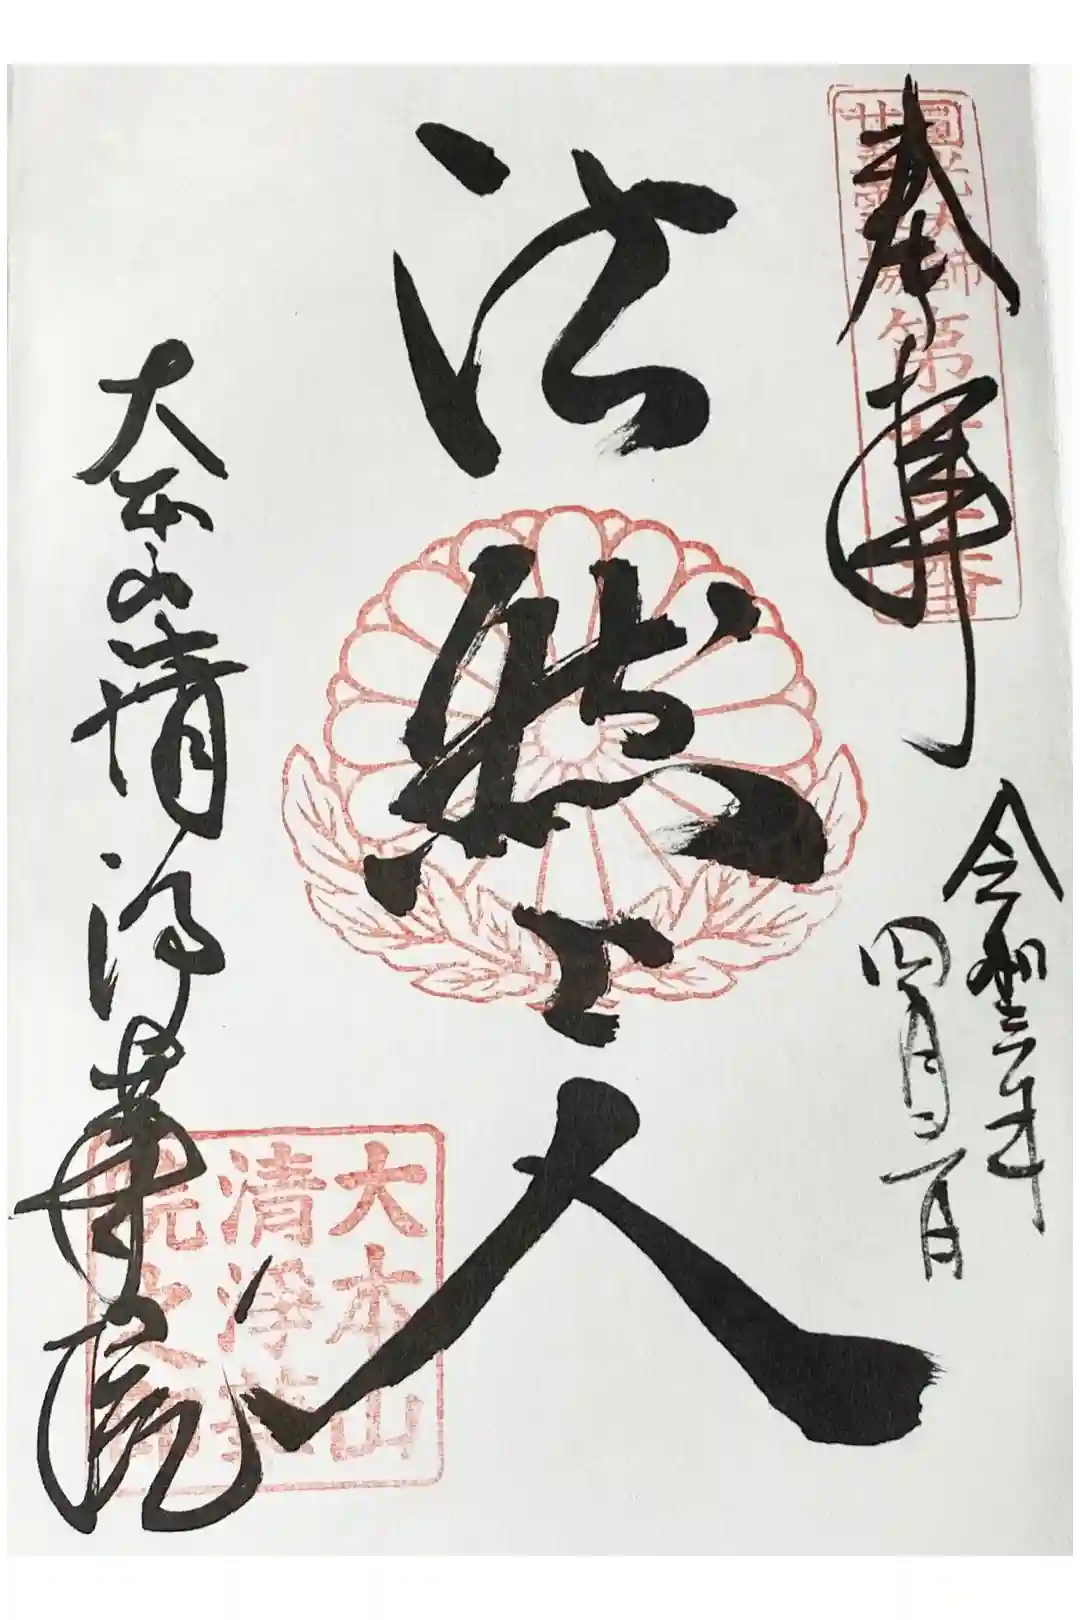 圓光大師
廿五霊場
第廿三番
奉拝
令和三年
四月
法然上人
大本山清浄華院
大本山
清浄華
院之印